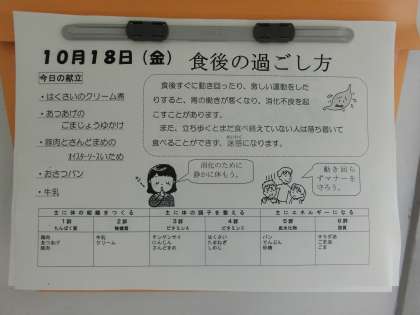 10月18日（金） 食後の過ごし方
今日の献立
・はくさいのクリーム煮
・あつあげの
ごまじょうゆかけ
・豚肉とさんどまめの
オイスターソースいため
・おさつパン
・牛乳
食後すぐに動き回ったり、激しい運動をした
りすると、胃の働きが悪くなり、消化不良を起
こすことがあります。
また、立ち歩くとまだ食べ終えていない人は落ち着いて
食べることができず、迷惑になります。
消化のために
静かに休もう。
動き回ら
ずマナーを
守ろう。
主に体の組織をつくる 主に体の調子を整える 主にエネルギーになる
1群 2群 3群 4群 5群 6群
たんぱく質 無機質 ビタミンA ビタミンC 炭水化物 脂質
鶏肉 牛乳 チンゲンサイ はくさい パン サラダ油
あつあげ クリーム にんじん たまねぎ でんぷん ごま油
豚肉 さんどまめ しめじ 砂糖 ごま